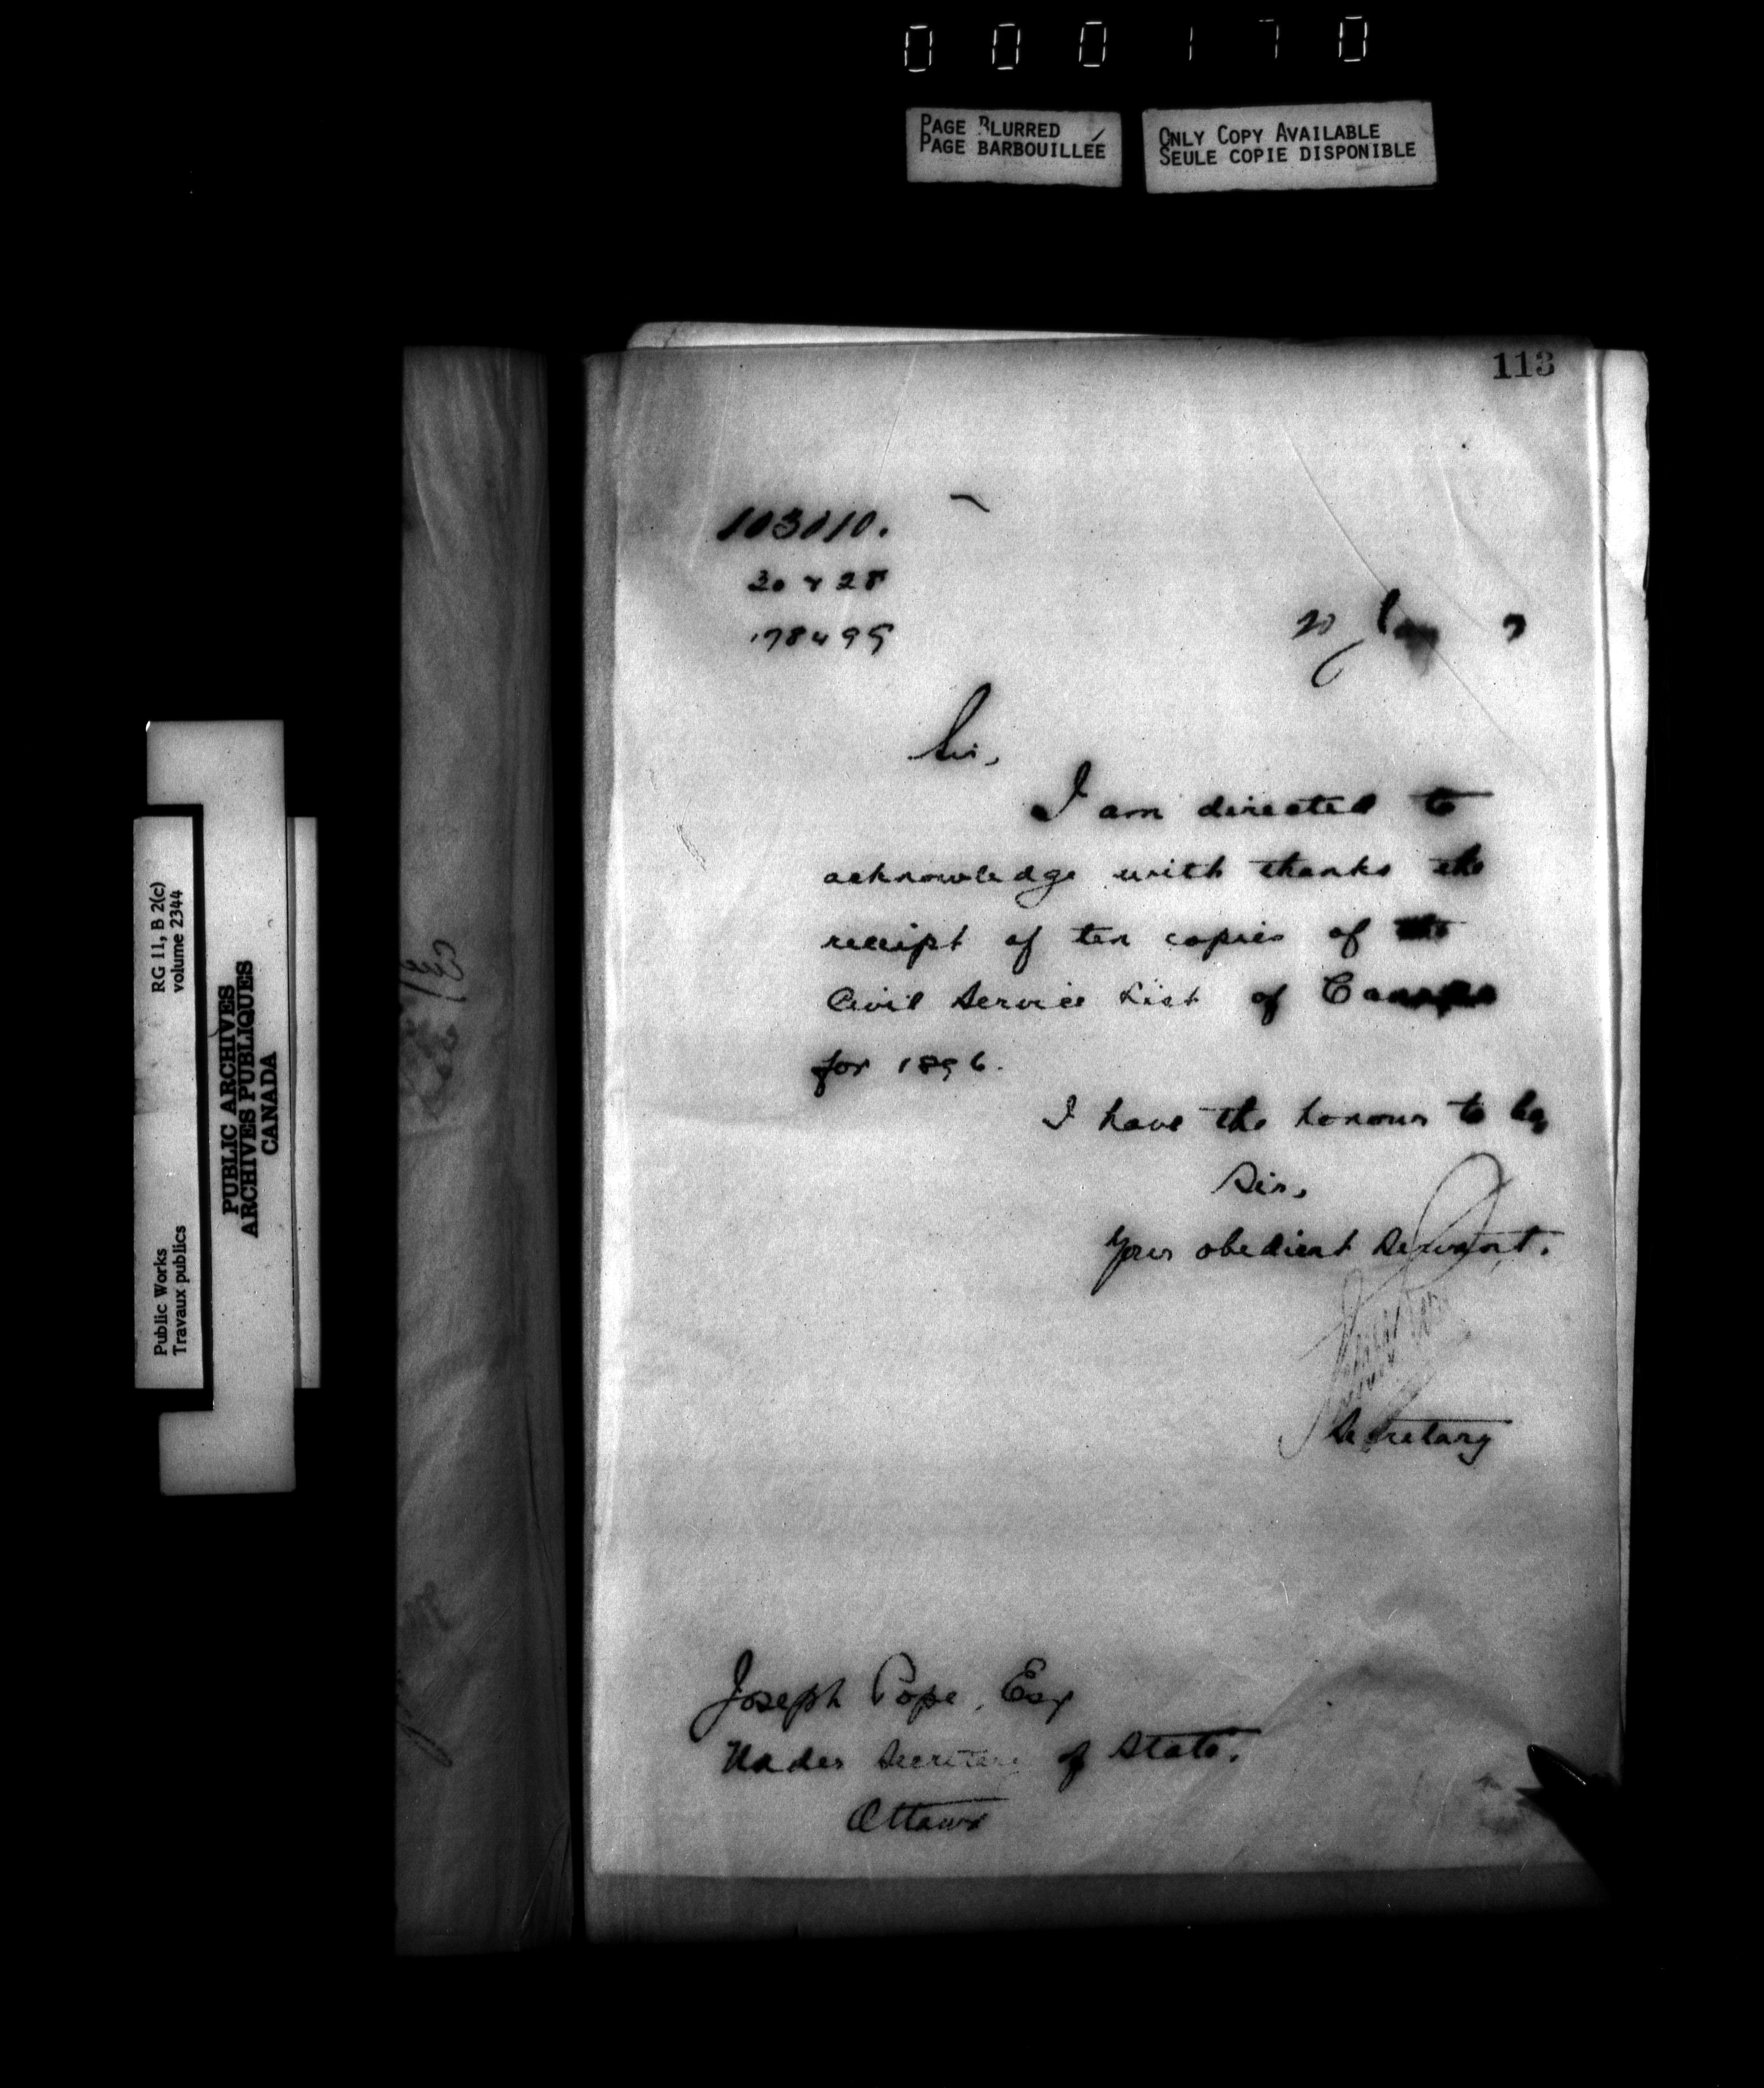 000170
PAGE BLURRED
PAGE BARBOUILLÉE
ONLY COPY AVAILABLE
SEULE COPIE DISPONIBLE
113
103010.
30 & 28
178499
20
7
Sir,
I am directed to
acknowledge with thanks the
receipt of ten copies of the
Civil Service List of Canada
for 1896.
I have the honour to be,
Sir,
Your obedient Servant.
Secretary
Joseph Pope, Esq
Under Secretary of State.
Ottawa
RG 11, B 2(c)
volume 2344
Public Works
Travaux publics
PUBLIC ARCHIVES
ARCHIVES PUBLIQUES
CANADA